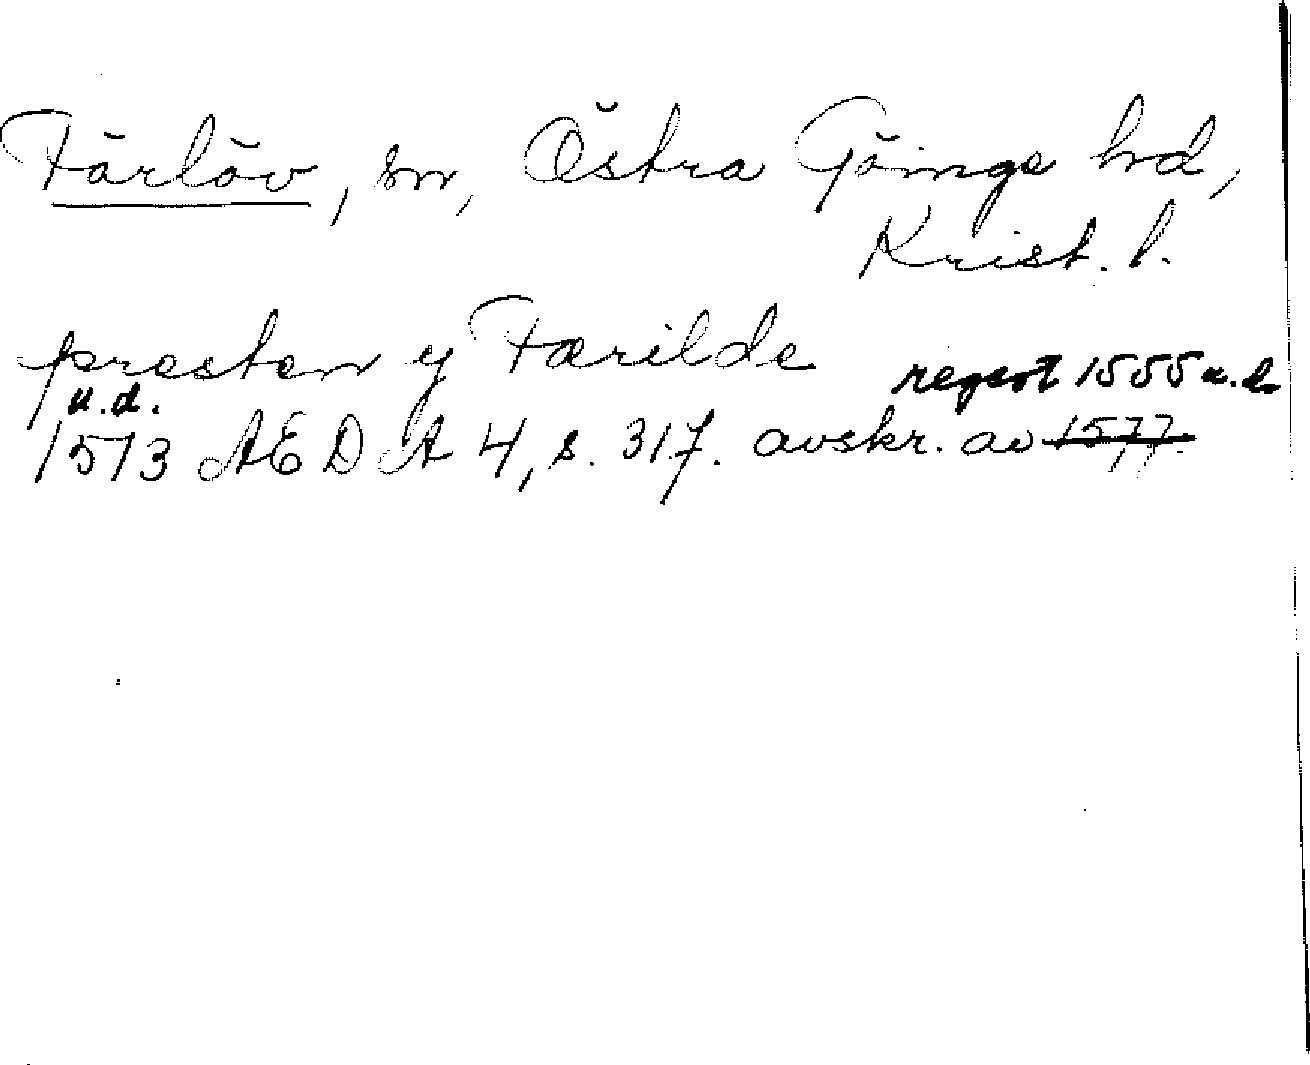 Färlöv, sn, Östra Göinge hd,
Krist. l.
presten y Färilde
u.d.
regest 1555 u.
1513 AEDA 4, s. 317. avskr. av 1577